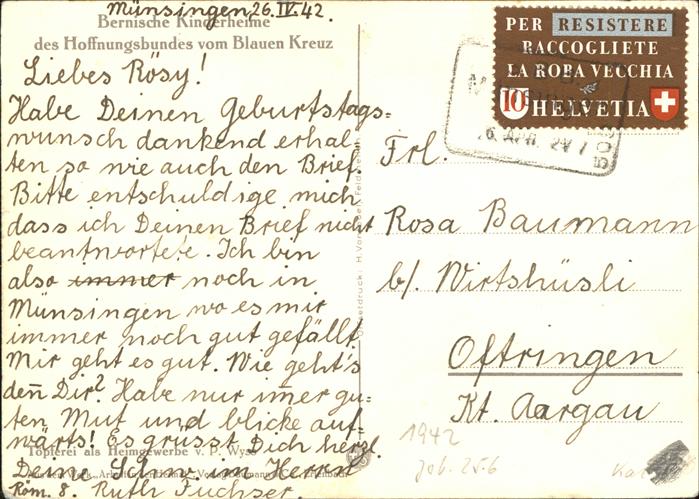 Münsingen 26.IV.42.
Bernische Kinderheime
des Hoffnungsbundes vom Blauen Kreuz
Liebes Rösy!
Habe Deinen Geburtstags=
wunsch dankend erhal-
ten so wie auch den Brief.
Bitte entschuldige mich
dass ich Deinen Brief nicht
beantwortete. Ich bin
also immer noch in
Münsingen wo es mir
immer noch gut gefällt.
Mir geht es gut. Wie geht's
deñ Dir? Habe nur im̃er gu-
ten Mut und blicke auf-
wärts! Es grüsst Dich herzl.
Töpferei als Heimgewerbe v. P. Wyss
Deine Schw. im Herrn
Röm. 8. Ruth Fuchser.
PER RESISTERE
RACCOGLIETE
LA ROBA VECCHIA
10 HELVETIA
Frl.
Rosa Baumann
b/. Wirtshüsli
Oftringen
Kt. Aargau
1942